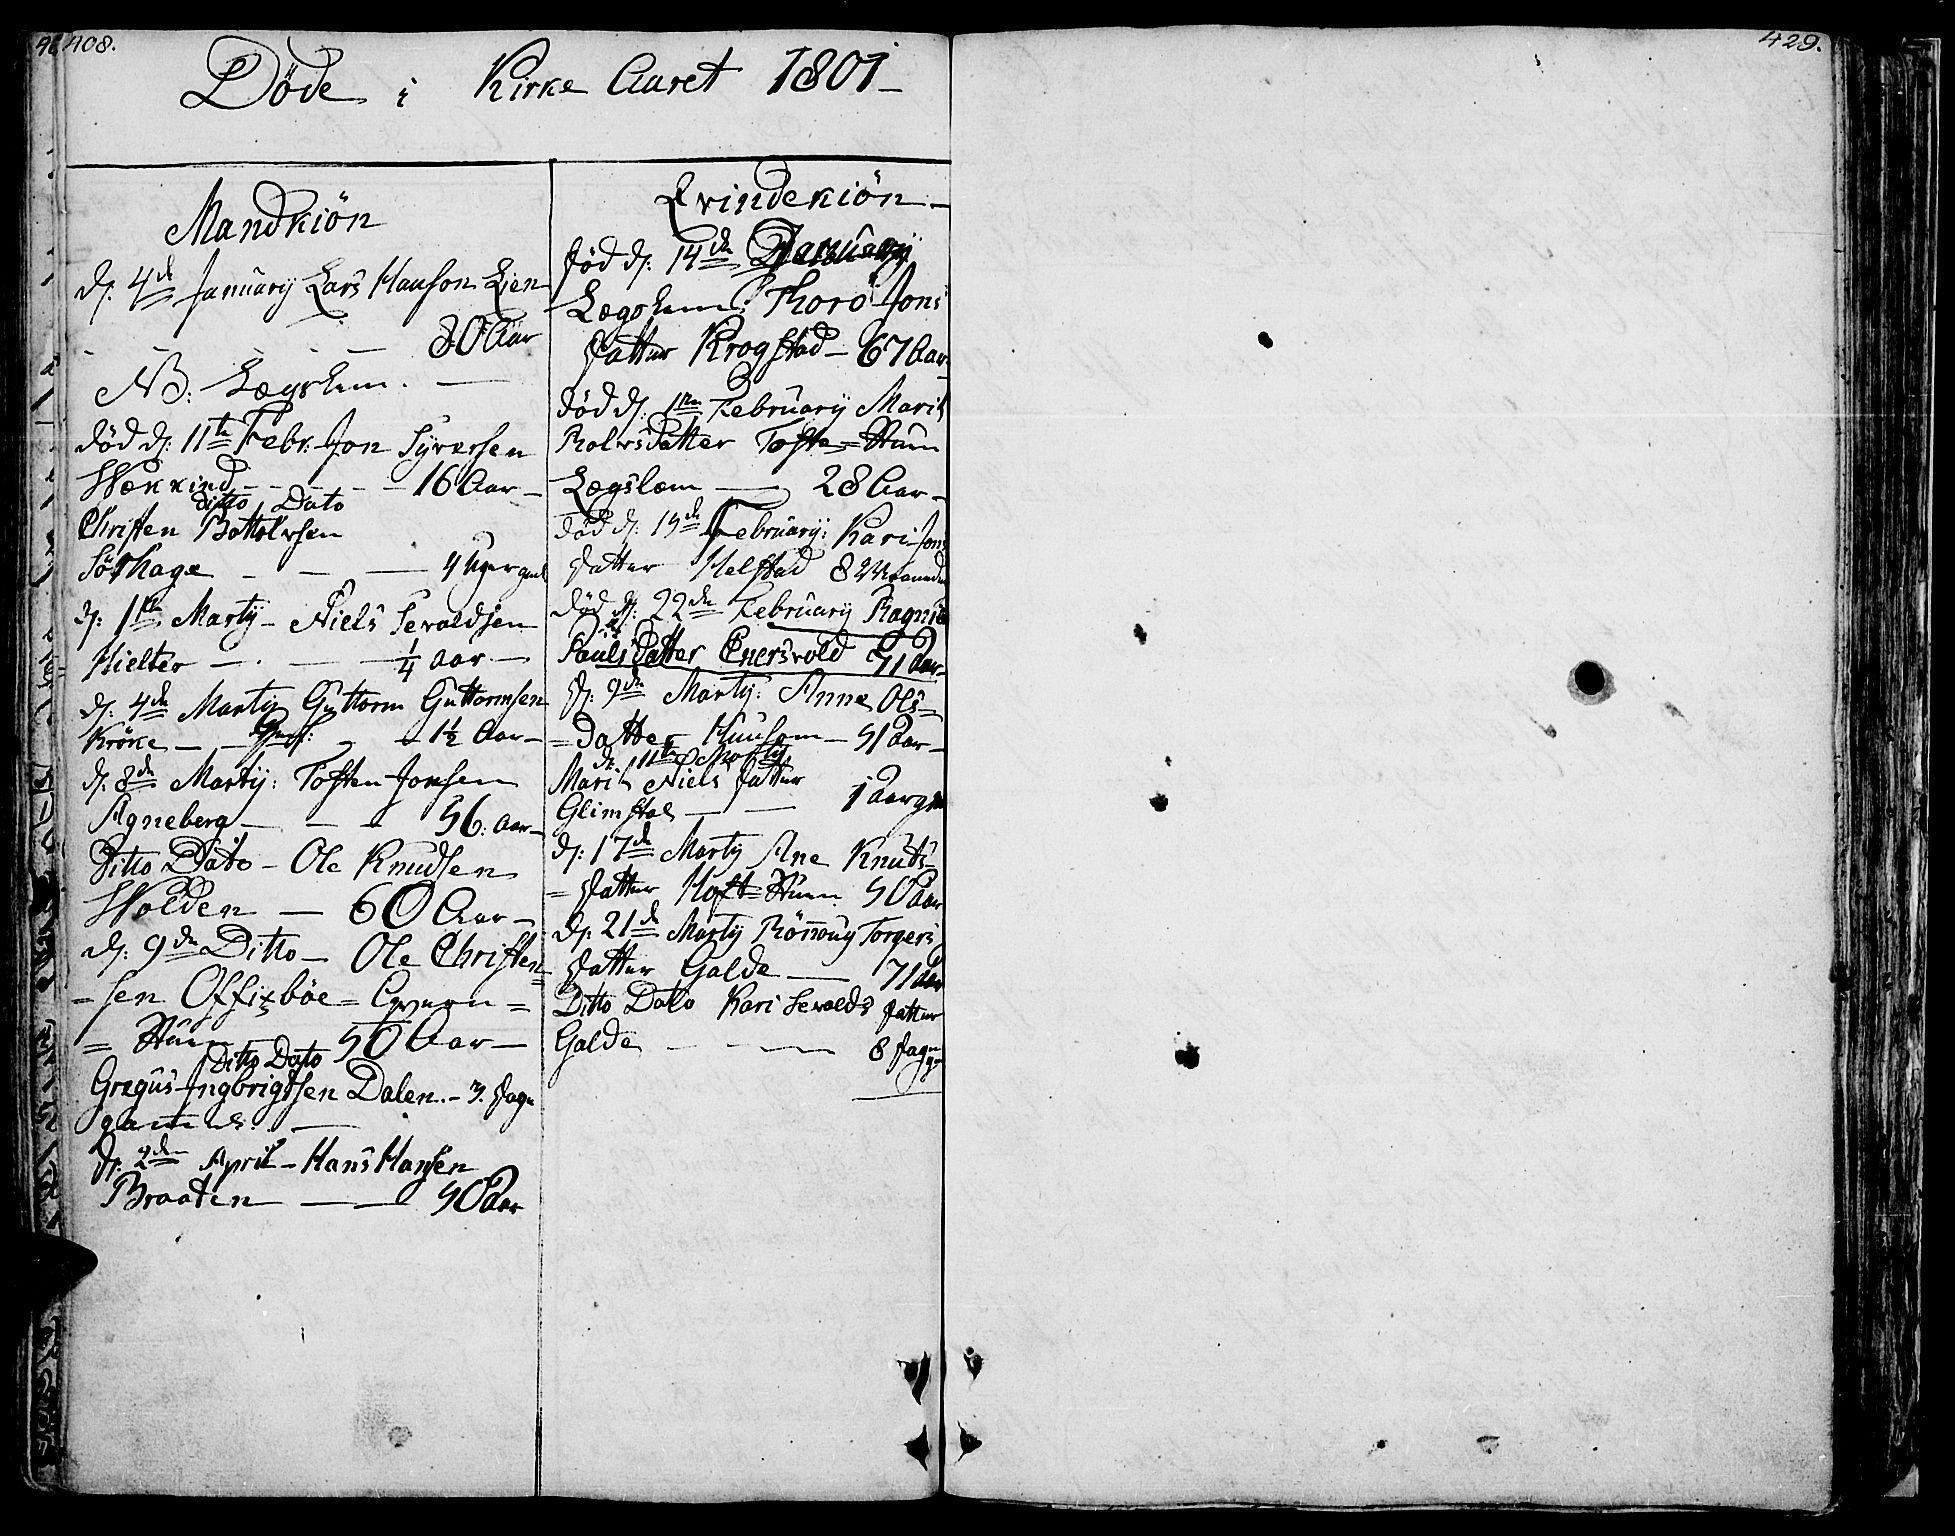 408.
Døde i Kirke Aaret 1801
Mandkiøn
d: 4de January Lars Hansen Lien
80 Aar
NB: Lægslem.
død d: 11te Febr: Jon Syversen
Wekkind 16 Aar
ditto Dato
Christen Bottolvsen
Sørhage 4 Uger gml
d: 1te Martij Niels Sevaldsen
Hielter 1/4 Aar
d: 4de Martij Guttorm Guttormsen
Krøke 1½ Aar
d: 8de Martij: Tosten Jonsen
Agneberg 56: Aar
Ditto Dato Ole Knudsen
Wolden 60 Aar
d: 9de Ditto Ole Christen
sen
50 Aar
Ditto Dato
Gregus Ingbrigtsen Dalen 3. Dage
gammel.
d: 2den April Hans Hansen
Braaten 50 Aar
Qvindekiøn
død d: 14de January
Lægslem: Thoro Jons
datter Krogstad 67 Aar
død d: 1te February Marit
Rolvsdatter Toste=Stuen
Lægslem 28 Aar
død d: 15de February: Kari Jons
datter Melstad 8 Maaneder
død d: 22de February Ragnil
Paulsdatter Enersvold 51 Aar
d: 9de Martij: Anne Ols=
=datter Huusom 51 Aar
d: 11te Martij
Marit Niels datter
Glimsdal 1 Aar gml
d: 17de Martij Ane Knuts=
=datter Hoft=Stuen 50 Aar
d: 21de Martij Rønnoug Torgers
datter Galde 71 Aar
Ditto Dato Kari Sevalds datter
Galde 8 Dage
gml
429.